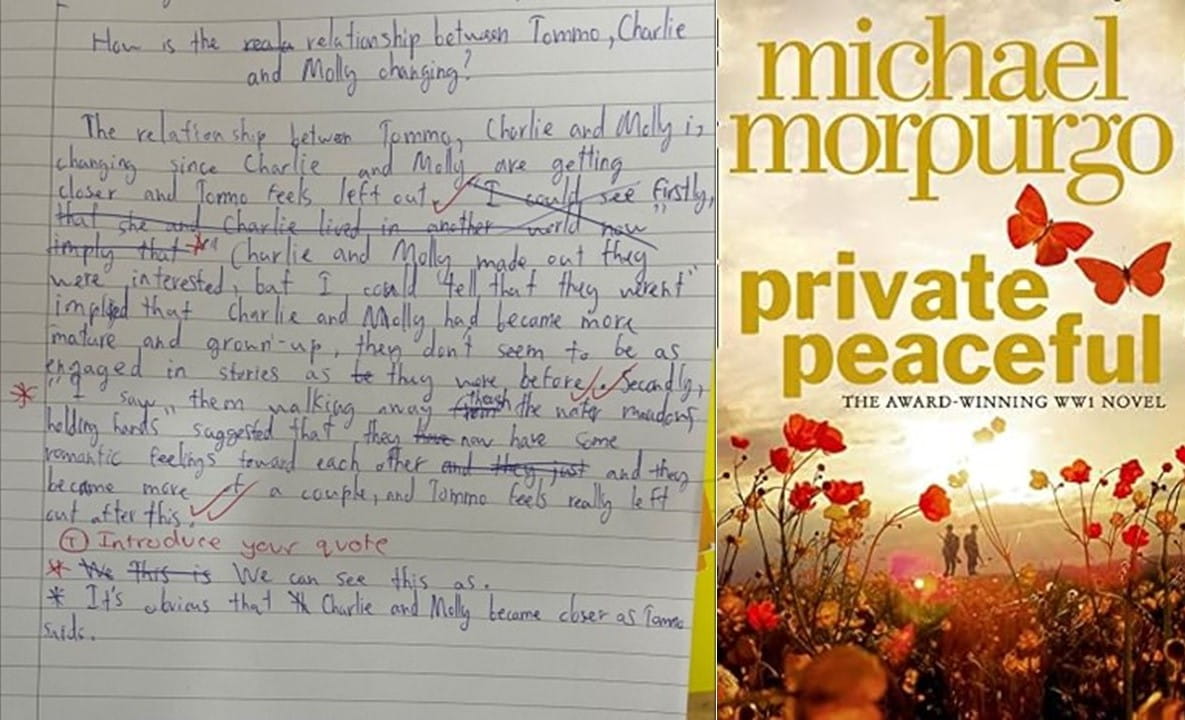 How is the reala relationship between Tommo, Charlie
and Molly changing?
The relationship betwen Tommo, Charlie and Molly is
changing since Charlie and Molly are getting
closer and Tommo feels left out. I could see firstly,
that she and Charlie lived in another world now
imply that * " Charlie and Molly made out they
were interested, but I could tell that they weren't"
implied that Charlie and Molly had became more
mature and grown-up, they don't seem to be as
engaged in stories as be they were before. Secondly,
* "I saw them walking away through the water meadows,
holding hands" suggested that they have now have some
romantic feelings toward each other and they just and they
became more of a couple, and Tommo feels really left
out after this.
T Introduce your quote
* We This is We can see this as.
* It's obvious that Charlie and Molly became closer as Tommo
saids.
michael
morpurgo
private
peaceful
THE AWARD-WINNING WW1 NOVEL